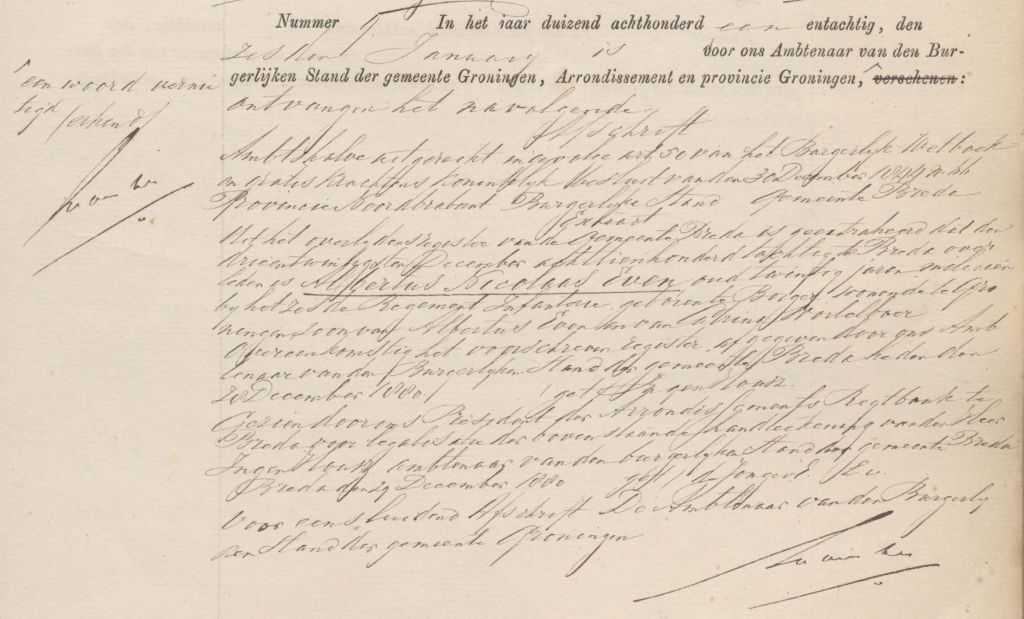 Nummer In het jaar duizend achthonderd een entachtig, den
zesden January is door ons Ambtenaar van den Bur-
gerlijken Stand der gemeente Groningen, Arrondissement en provincie Groningen, verschenen:
een woord vernie
tigd erkend
ontvangen het navolgende
Afschrift
Ambtshalve uitgereikt ingevolge art. 50 van het Burgerlijk Wetboek
en gratis krachtens Koninklijk Besluit van den 30 December 1844 No 66
Provincie Noordbrabant Burgerlijke Stand Gemeente Breda
Extract
Uit het overlijdensregister van de Gemeente Breda is geextraheerd dat den
drieentwintigsten December achttienhonderd tachtig te Breda over
leden is Nicolaas Even oud twintig jaren
bij het zesde Regement Infanterie, geboren te Borger wonende te Gro
ningen zoon van Albertus Even en van
Overeenkomstig het voorschreven register, afgegeven door ons Amb
tenaar van den Burgerlijken Stand der gemeente Breda heden den
28 December 1880 get IngenHousz.
Gezien door ons President der Arrondissements Regtbank te
Breda voor legalisatie der bovenstaande handteekening van den Heer
IngenHousz ambtenaar van den burgerlijken Stand der gemeente Breda
Breda den 29 December 1880 get de Jonge
Voor eensluidend Afschrift De Ambtenaar van den Burgerlij
ken Stand der gemeente Groningen